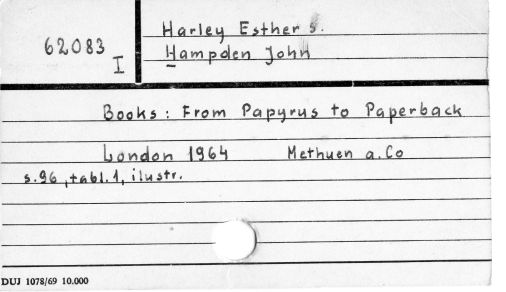 62083
I
Harley Esther S.
Hampden John
Books: From Papyrus to Paperback
London 1964 Methuen a. Co
s. 96, tabl. 1, ilustr.
DUJ 1078/69 10.000